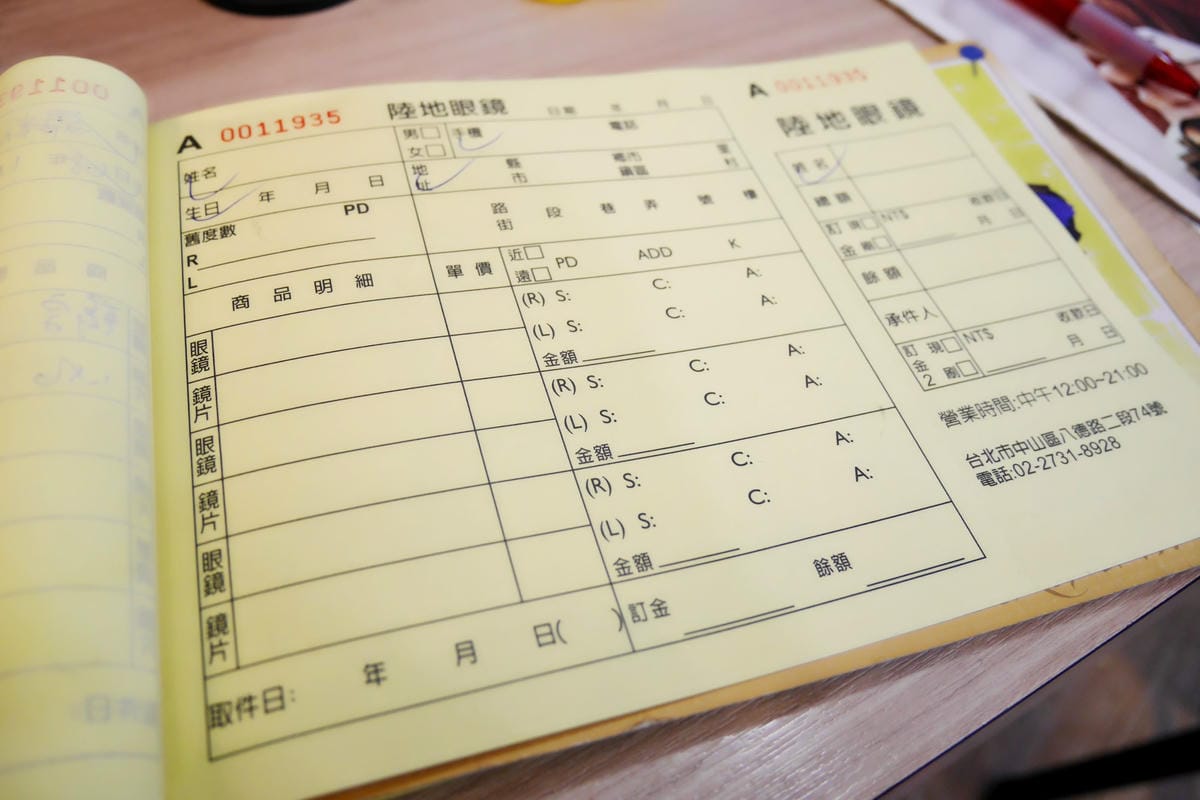 A 0011935 陸地眼鏡 日期 年 月 日
姓名 男□ 女□ 手機 電話
生日 年 月 日 地址 縣市 鄉市鎮區 里村
路街 段 巷 弄 號 樓
舊度數 PD
R
L
商品明細 單價 近□ 遠□ PD ADD K
眼鏡 (R) S: C: A:
鏡片 (L) S: C: A:
金額
眼鏡 (R) S: C: A:
鏡片 (L) S: C: A:
金額
眼鏡 (R) S: C: A:
鏡片 (L) S: C: A:
金額
取件日: 年 月 日( ) 訂金 餘額
A 0011935
陸地眼鏡
姓名
總額
訂金 現□ 刷□ NT$ 收款日 月 日
餘額
承件人
訂金2 現□ 刷□ NT$ 收款日 月 日
營業時間:中午12:00~21:00
台北市中山區八德路二段74號
電話:02-2731-8928